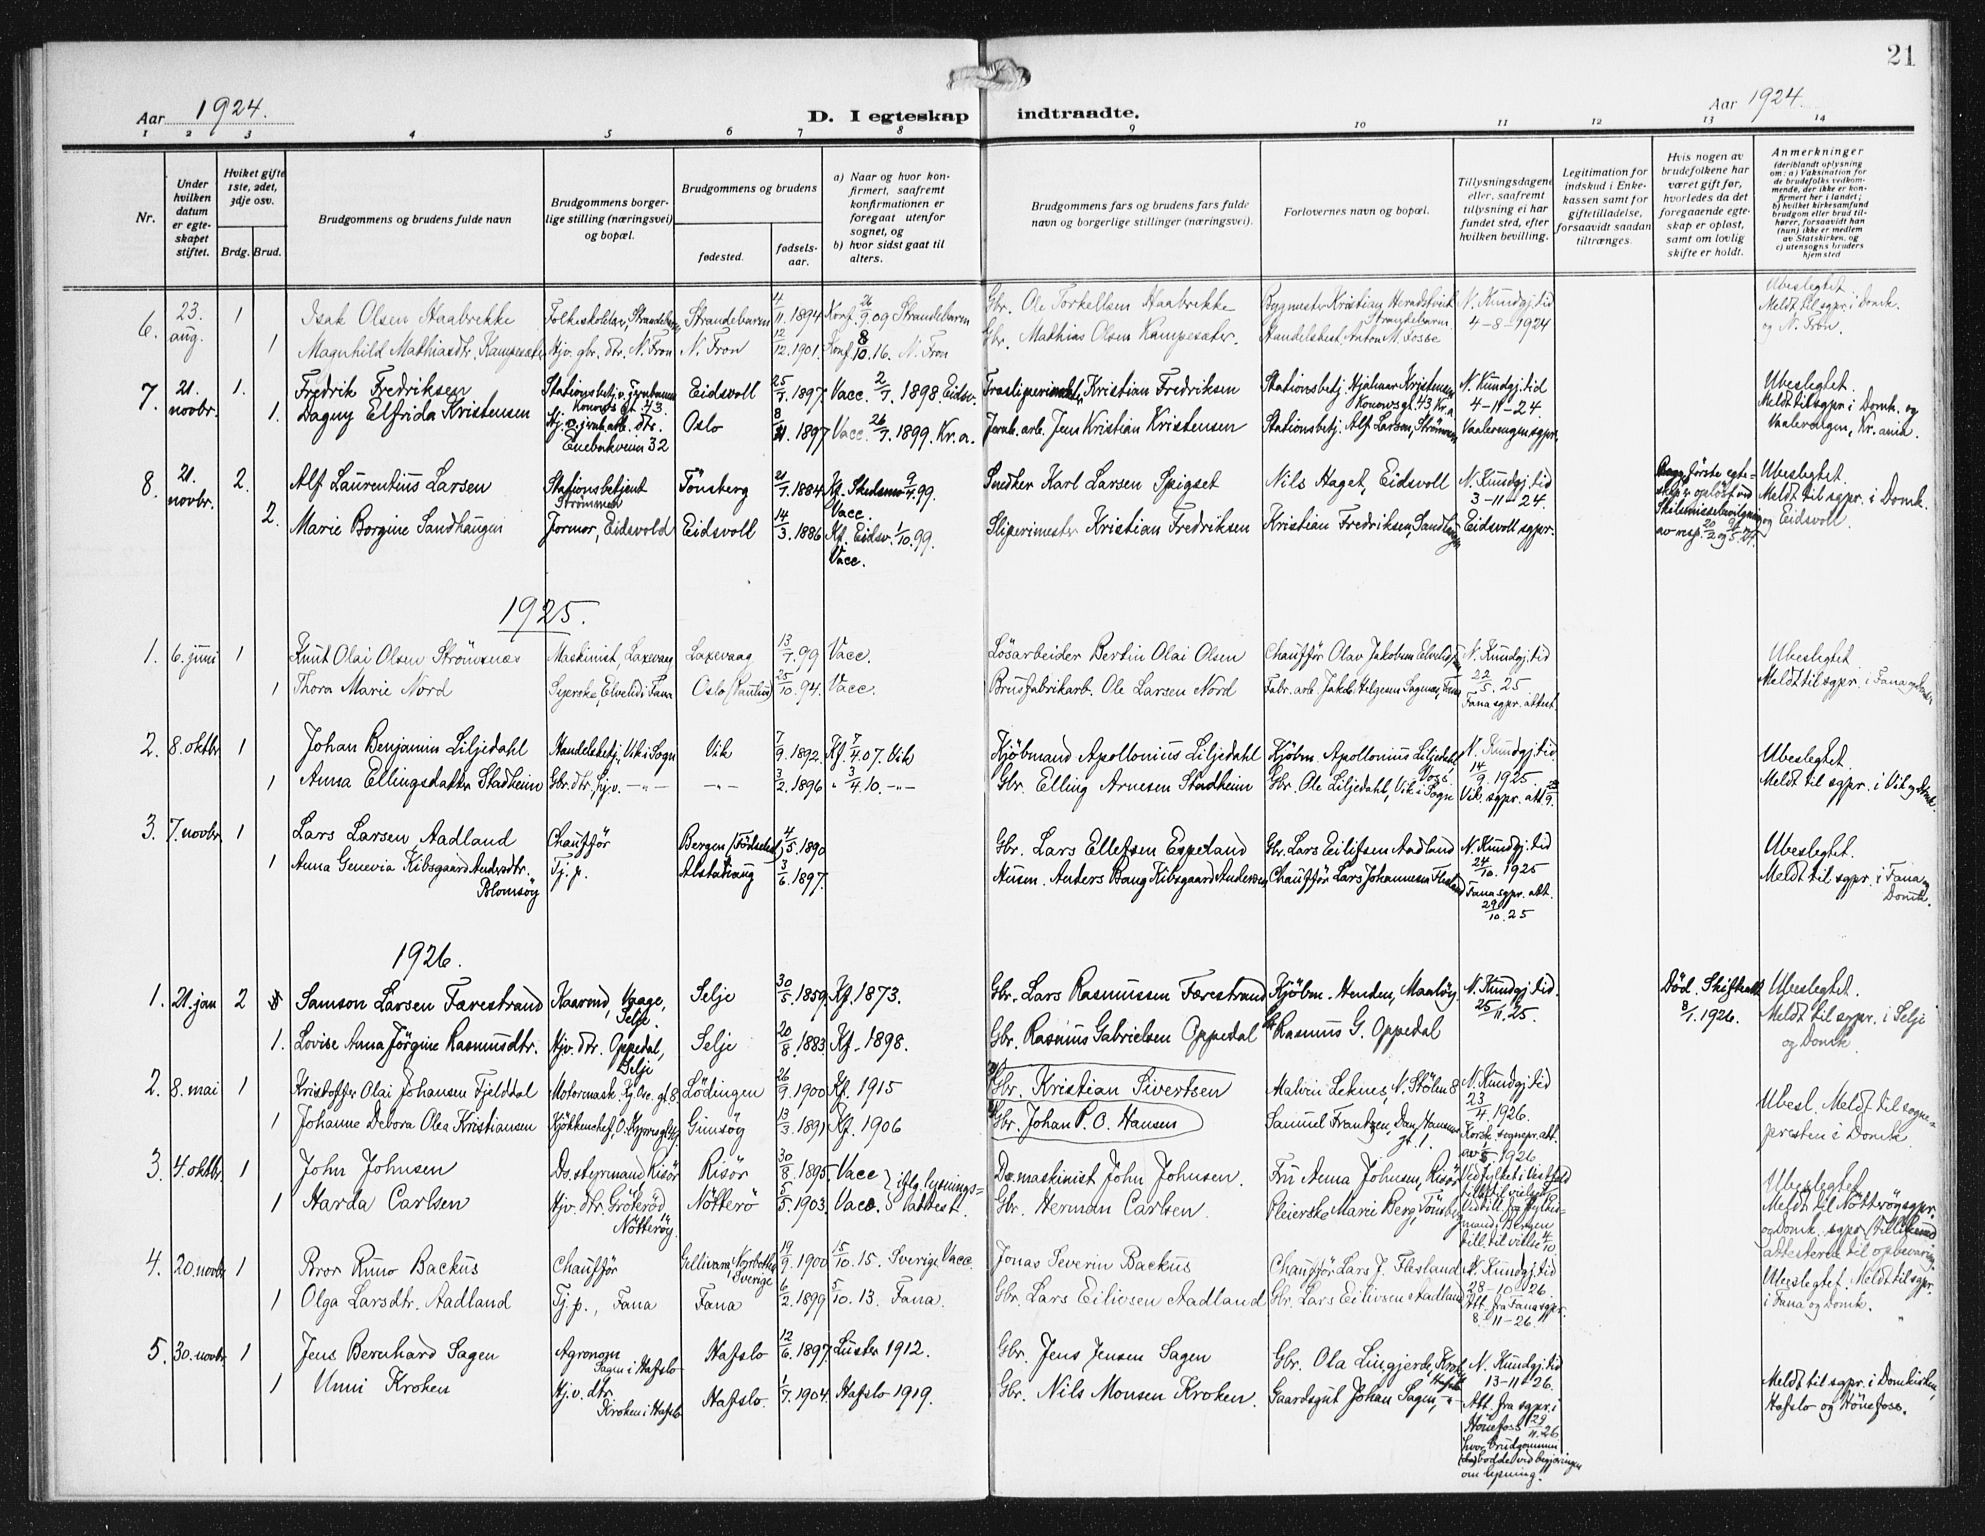 21
Aar 1924.
D. I egteskap indtraadte.
Aar 1924.
1 2 3 4 5 6 7 8 9 10 11 12 13 14
Nr.
Under hvilken datum er egteskapet stiftet.
Hviket gifte 1ste, 2det, 3dje osv.
Brdg. Brud.
Brudgommens og brudens fulde navn
Brudgommens borgerlige stilling (næringsvei) og bopæl.
Brudgommens og brudens
fødested.
fødselsaar.
a) Naar og hvor konfirmert, saafremt konfirmationen er foregaat utenfor sognet, og
b) hvor sidst gaat til alters.
Brudgommens fars og brudens fars fulde navn og borgerlige stillinger (næringsvei).
Forlovernes navn og bopæl.
Tillysningsdagene eller, saafremt tillysning ei har fundet sted, efter hvilken bevilling.
Legitimation for indskud i Enkekassen samt for giftetilladelse, forsaavidt saadan tiltrænges.
Hvis nogen av brudefolkene har været gift før, hvorledes da det foregaaende egteskap er opløst, samt om lovlig skifte er holdt.
Anmerkninger
(deriblandt oplysning om: a) Vaksination for de brudefolks vedkommende, der ikke er konfirmert her i landet; b) hvilket kirkesamfund brudgom eller brud tilhører, forsaavidt han (hun) ikke er medlem av Statskirken, og c) utensogns bruders hjemsted
6. 23. aug. 1 Isak Olsen Haabrekke Folkeskolelær, Strandebarm Strandebarm 4/11. 1894 Konf. 26/9. 09 Strandebarm Gbr. Ole Torkellsen Haabrekke Bygmester Kristian Strandebarm N. Kundgj. tid 4-8-1924 Ubeslegtet. Meldt til sgpr. i Domk. og N. Fron.
1 Magnhild Mathiasdtr. Kampesæter Hjv. gbr. dtr. N. Fron N. Fron 12/12. 1901 Konf. 8/10. 16. N. Fron Gbr. Mathias Olsen Kampesæter. Handelsbest. Anton M. Fosse
7. 21. novbr. 1. Fredrik Fredriksen Stationsbetj. v. jernbanen Konows gt. 43. Eidsvoll 25/7. 1897 Vacc. 2/7. 1898. Eidsv. Kristian Fredriksen Stationsbetj. Hjalmar Kristensen Konowsgt. 43 Kr.a N. Kundgj. tid 4-11-24. Ubeslegtet. Meldt til sgpr. i Domk. og Vaalerengen, Kr.ania.
1. Dagny Elfrida Kristensen Hj. v. jernb.arb. dtr. Enebakveien 32 Oslo 8/11. 1897 Vacc. 26/7. 1899. Kr.a. Jernb. arb. Jens Kristian Kristensen Stationsbetj. Alf Larsen, Strømmen Vaalerengen sgpr.
8. 21. novbr. 2. Alf Laurentius Larsen Stationsbetjent Strømmen Tönsberg 21/7. 1884 Kf. 9/4. 99. Vacc. Snedker Karl Larsen Spigset Nils Haget, Eidsvoll N. Kundgj. tid 3-11-24. Begges første egteskap er opløst ved Skilsmissebevilgning av resp. 20/2 og 9/5. 24. Ubeslegtet. Meldt til sgpr. i Domk. og Eidsvoll.
2. Marie Borgine Sandhaugen Jormor, Eidsvold Eidsvoll 14/3. 1886 Kf. Eidsv. 1/10. 99. Vacc. Sliperimestr Kristian Fredriksen Kristian Fredriksen, Sandhaugen Eidsvoll sgpr.
1925.
1. 6. juni 1 Knut Olai Olsen Strömsnes Maskinist, Laxevaag Laxevaag 13/7. 99 Vacc. Lösarbeider Bertin Olai Olsen Chauffør Olav Jakobsen N. Kundgj. tid 22/5. 25 Ubeslegtet. Meldt til sgpr. i Fana og Domk.
1 Thora Marie Nord Syerske, Elvelid i Fana Oslo (Paulus) 25/10. 94. Vacc. Brusfabrikarb. Ole Larsen Nord Fabr. arb. Jakob Helgesen Fana sgpr. attest.
2. 8. oktbr 1 Johan Benjamin Liljedahl Handelsbetj., Vik i Sogn Vik 7/9. 1892. Kf. 7/4. 07. Vik Kjöbmand Apollonius Liljedahl Kjöbm. Apollonius Liljedahl, Voss N. Kundgj. tid 14/9. 1925. Ubeslegtet. Meldt til sgpr. i Vik og Domk.
1 Anna Ellingsdatter Stadheim Gbr. dtr., hj.v. -"- -"- 3/2. 1896 " 3/4. 10. -"- Gbr. Elling Arnesen Stadheim Gbr. Ole Liljedahl, Vik i Sogn Vik. sgpr. att. 23/9.
3. 7. novbr. 1 Lars Larsen Aadland Chauffør Bergen (Födselsst.) 4/5. 1890 Gbr. Lars Ellefsen Espeland Gbr. Lars Eilifsen Aadland N. Kundgj. tid 24/10. 1925 Ubeslegtet. Meldt til sgpr. i Fana og Domk.
1 Anna Genevia Kibsgaard Andersdtr. Blomsöy Tj. p. Alstahaug 3/6. 1897. Husm. Anders Bang Kibsgaard Andersen Chauffør Lars Johannesen Flesland Fana sgpr. att. 29/10. 25
1926.
1. 21. jan 2 Samson Larsen Færestrand Kaarmd, Vaage, Selje. Selje 30/5. 1859 Kf. 1873. Gbr. Lars Rasmussen Færestrand Kjöbm. Henden, Maalöy N. Kundgj. tid. 25/11. 25. Död. Skifteatt. 8/1. 1926. Ubeslegtet. Meldt til sgpr. i Selje og Domk.
1. Lovise Anna Jörgine Rasmusdtr. Hjv. dtr. Oppedal, Selje Selje 20/8. 1883 Kf. 1898. Gbr. Rasmus Gabrielsen Oppedal Gbr. Rasmus G. Oppedal
2. 8. mai 1 Kristoffer Olai Johansen Fjelddal Motormask. Lödingen 26/9. 1900 Kf. 1915 Gbr. Kristian Sivertsen Malvin Leknes, N. Stölen 8 N. Kundgj. tid 23/4. 1926. Ubesl. Meldt til sognepresten i Domk.
1 Johanne Debora Olea Kristiansen Kjökkenchef, Gimsöy 13/3. 1891 Kf. 1906 Gbr. Johan P. O. Hansen Samuel Frantzen, Dan. Hansens gt. 1. Korsk. sognepr. att. av 5/5 1926
3. 4. oktbr 1 John Johnsen Ds. styrmand Risör Risör 30/8. 1895 Vacc iflg. lysningsattest. Ds. maskinist John Johnsen. Fru Anna Johnsen, Risör Ubeslegtet. Meldt til Nötteröy sgpr. og Domk. sgpr.
1 Harda Carlsen Hjv. dtr. Gröteröd Nötteröy. Nötterö 5/5. 1903 Vacc. Gbr. Herman Carlsen. Pleierske Marie Berg, Tönsberg
4. 20. novbr 1 Bror Runo Backus Chauffør Gellivara, Norbotten Sverige 19/9. 1900 15/10. 15. Sverige Vacc. Jonas Severin Backus Chauffør Lars J. Flesland N. Kundgj. tid 28-10-26. Ubeslegtet. Meldt til sgpr. i Fana og Domk.
1 Olga Larsdtr. Aadland Tj. p., Fana Fana 6/2. 1899 5/10. 13. Fana. Gbr. Lars Eilivsen Aadland Gbr. Lars Eilivsen Aadland Att. fra Fana sgpr. 8-11-26.
5. 30. novbr 1 Jens Bernhard Sagen Agronom Sagen i Hafslo Hafslo 12/6. 1897 Luster 1912. Gbr. Jens Jensen Sagen Gbr. Ola Lingjerde, Hafslo N. Kundgj. tid 13-11-26. Meldt til sgpr. i Domkirken, Hafslo og Hönefoss.
1 Unni Kroken Hj.v. dtr. Kroken i Hafslo Hafslo. 1/7. 1904 Hafslo 1919. Gbr. Nils Monsen Kroken. Gaardsgut Johan Sagen, -"- Att. fra sgpr. i Hönefoss 29/11. 26. hvor brudgommen bodde ved begjæringen om lysning.